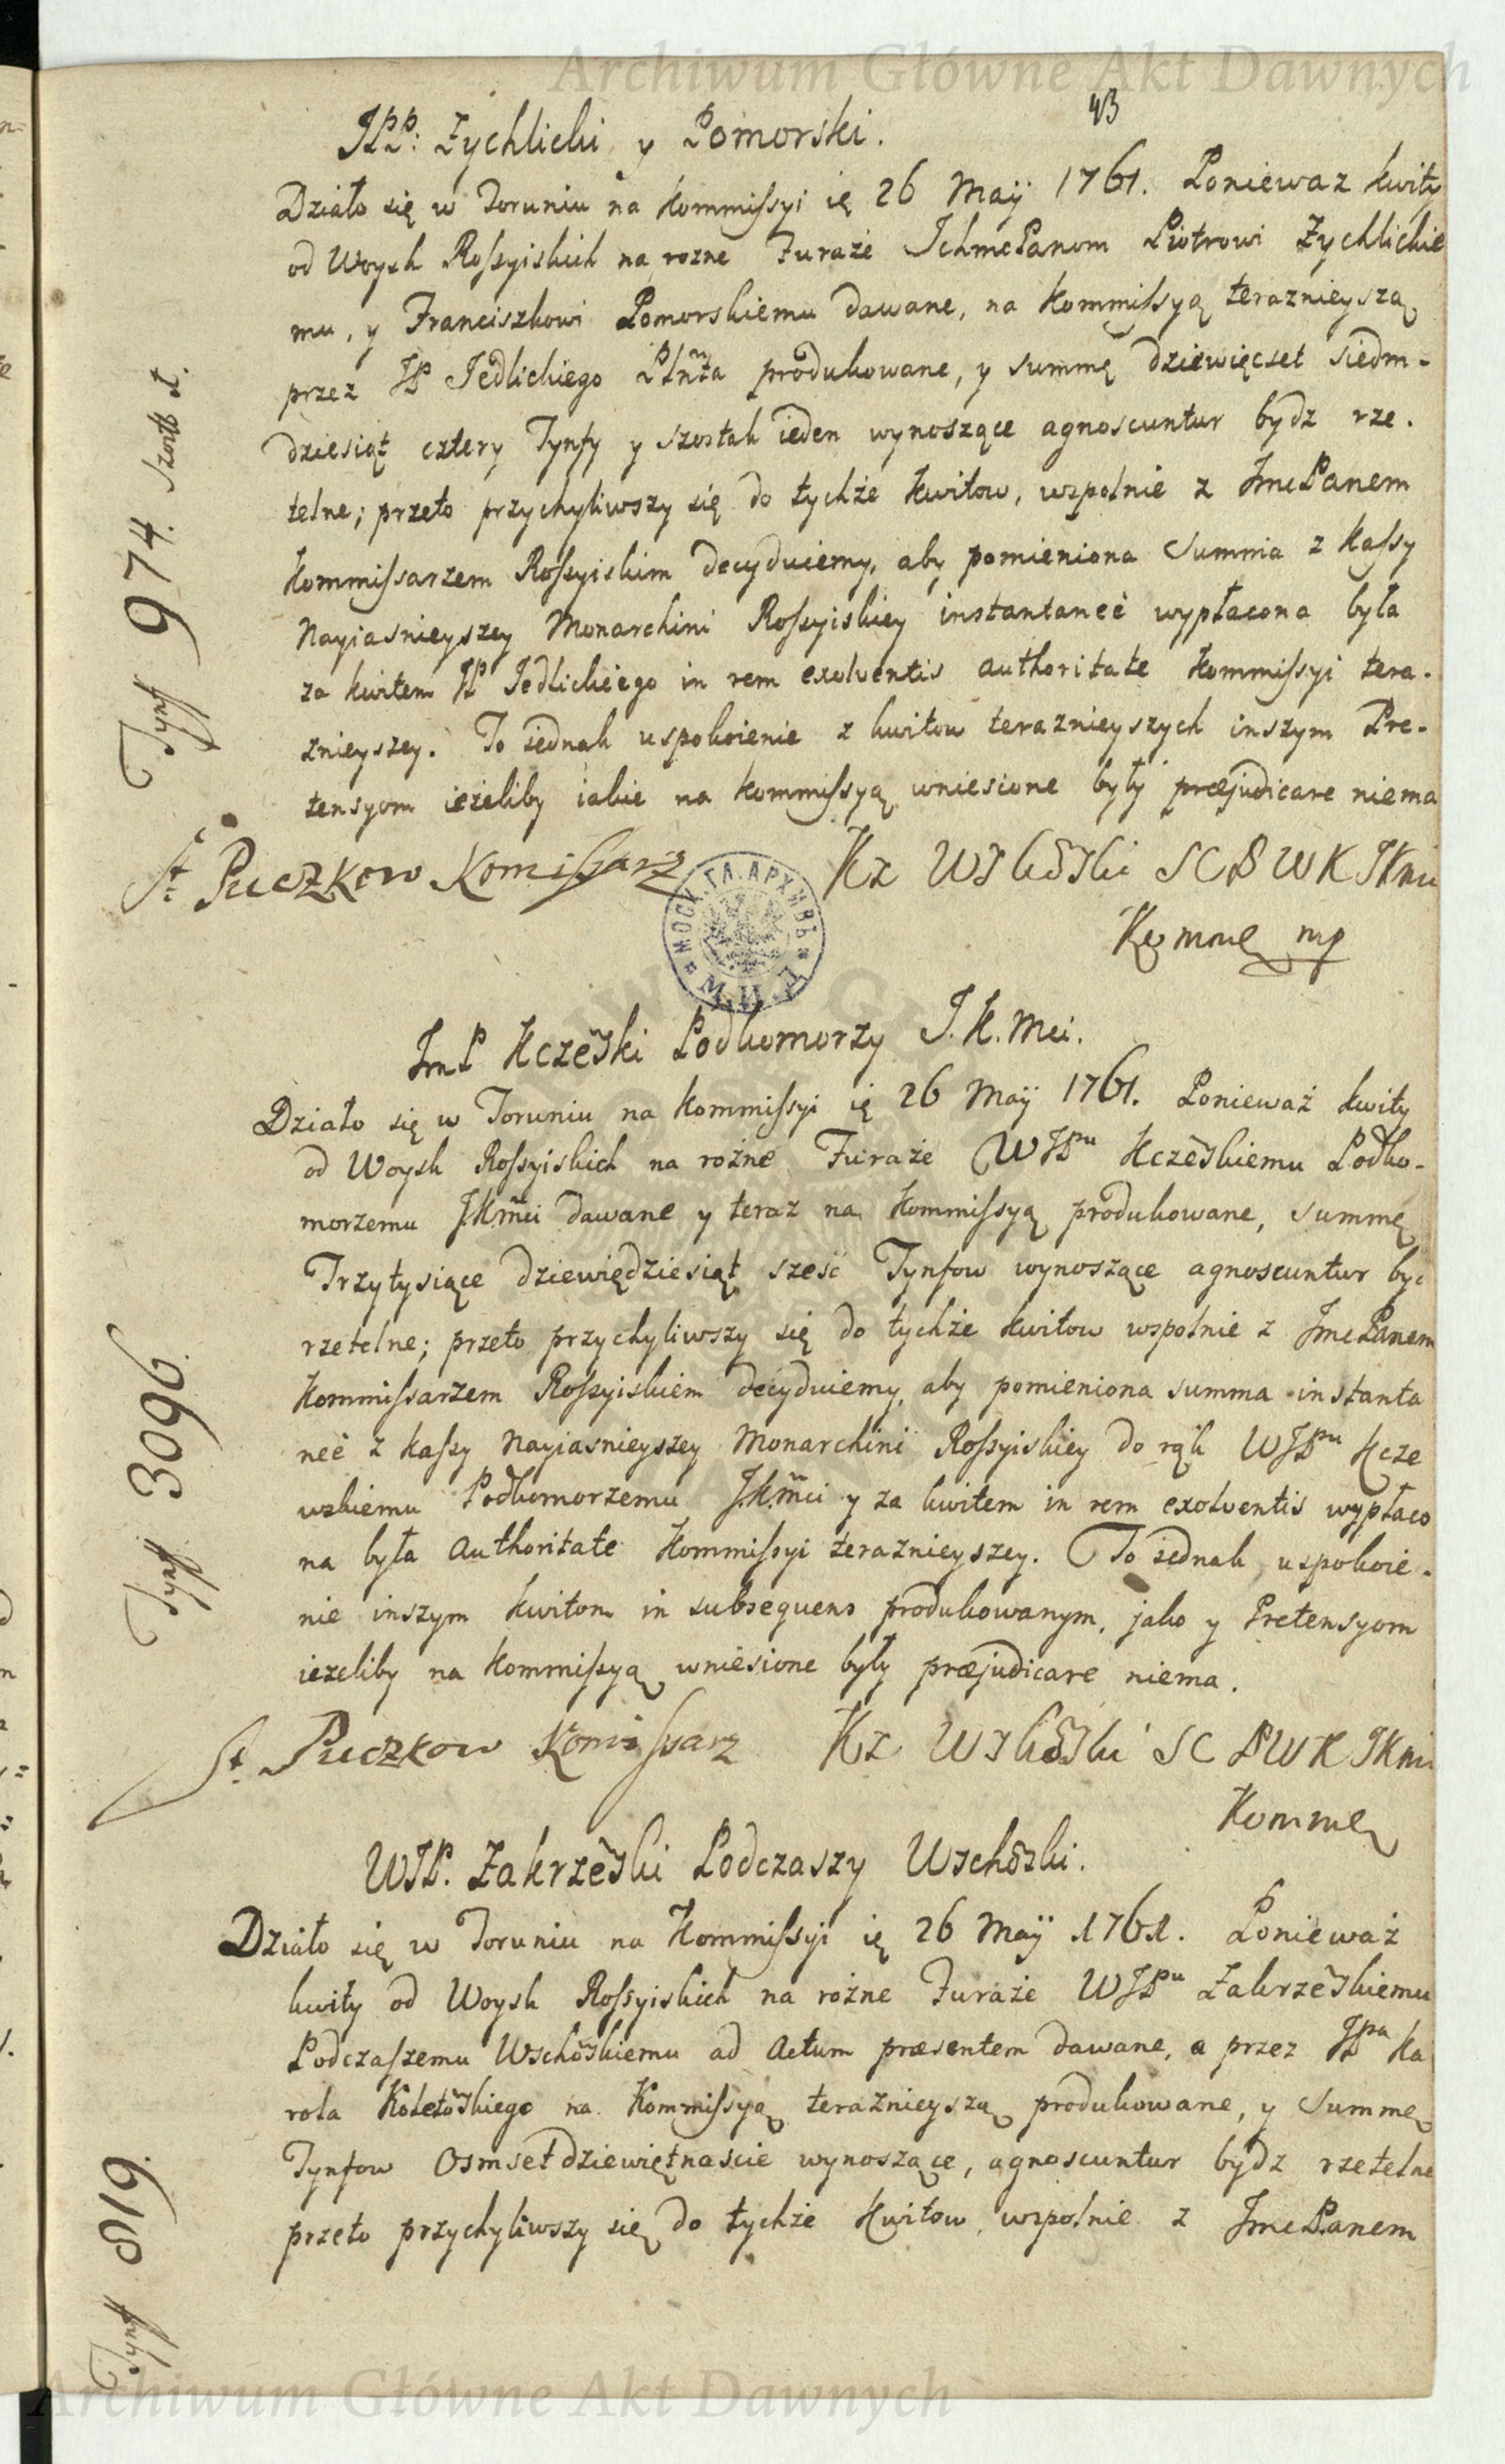 Archiwum Główne Akt Dawnych
43
JPP: Zychlicki y Pomorski.
Działo się w Toruniu na kommissyi ię 26 Maÿ 1761. Poniewaz kwity
od Woysk Rossyiskich na rozne Furaże IchmcPanom Piotrowi Zychlickie
mu, y Franciszkowi Pomorskiemu dawane, na kommissyą teraznieyszą
przez JP Jedlickiego Plñta produkowane, y summę dziewięcset siedm-
dziesiąt cztery Tynfy y szostak ieden wynoszące agnoscuntur bydz rze.
telne; przeto przychyliwszy się do tychże kwitow, wspolnie z JmcPanem
kommissarzem Rossyiskim decyduiemy, aby pomieniona summa z kassy
Nayiasnieyszey Monarchini Rossyiskiey instantaneè wypłacona była
za kwitem JP Jedlickiego in rem exolventis authoritate kommissyi tera-
znieyszey. To iednak uspokoienie z kwitow teraznieyszych inszym Pre-
tensyom ieżeliby iakie na kommissyą wniesione były præjudicare niema
Tynff 974. szost: 1.
St: Puczkow Komissarz
Kz Wskõski SCPWKJKmci
Komme mp
МОСК. ГЛ. АРХИВЪ М.И.Д.
JmP Kczẽski Podkomorzy J.K.Mci.
Działo się w Toruniu na kommissyi ię 26 Maÿ 1761. Ponieważ kwity
od Woysk Rossyiskich na rożne Furaże WJPnu Kczẽskiemu Podko-
morzemu JKm̃ci dawane y teraz na kommissyą produkowane, summę
Trzytysiące dziewiędziesiąt sześć Tynfow wynoszące agnoscuntur byc
rzetelne; przeto przychyliwszy się do tychże kwitow wspolnie z JmcPanem
kommissarzem Rossyiskiem decyduiemy, aby pomieniona summa instanta
neè z kassy Nayiasnieyszey Monarchini Rossyiskiey do rąk WJPnu Kcze
wskiemu Podkomorzemu JKm̃ci y za kwitem in rem exolventis wypłaco
na była Authoritate kommissyi teraznieyszey. To iednak uspokoie-
nie inszym kwitom in subsequens produkowanym, jako y Pretensyom
iezeliby na kommissyą wniesione były præjudicare niema.
Tynff 3096.
St. Puczkow Komissarz
Kz Wskõski SCPWKJKmci
Komme
WJP. Zakrzẽski Podczaszy Wschõski.
Działo się w Toruniu na Kommissyi ię 26 Maÿ 1761. Ponieważ
kwity od Woysk Rossyiskich na rożne Furaże WJPnu Zakrzẽskiemu
Podczaszemu Wschõskiemu ad Actum præsentem dawane, a przez JPna Ka
rola Koletõskiego na Kommissyą teraznieyszą produkowane, y Summę
Tynfow Osmset dziewiętnascie wynoszące, agnoscuntur bydz rzetelne
przeto przychyliwszy się do tychże kwitow, wspolnie z JmcPanem
Tynff 819.
Archiwum Główne Akt Dawnych